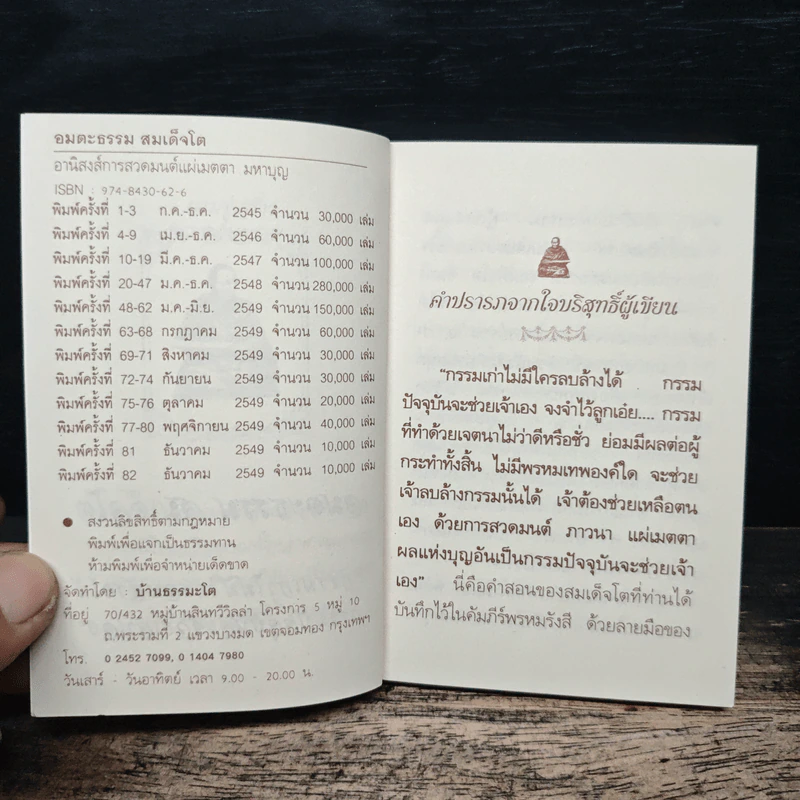 อมตะธรรม สมเด็จโต
อานิสงส์การสวดมนต์แผ่เมตตา มหาบุญ
ISBN : 974-8430-62-6
พิมพ์ครั้งที่ 1-3 ก.ค.-ธ.ค. 2545 จำนวน 30,000 เล่ม
พิมพ์ครั้งที่ 4-9 เม.ย.-ธ.ค. 2546 จำนวน 60,000 เล่ม
พิมพ์ครั้งที่ 10-19 มี.ค.-ธ.ค. 2547 จำนวน 100,000 เล่ม
พิมพ์ครั้งที่ 20-47 ม.ค.-ธ.ค. 2548 จำนวน 280,000 เล่ม
พิมพ์ครั้งที่ 48-62 ม.ค.-มิ.ย. 2549 จำนวน 150,000 เล่ม
พิมพ์ครั้งที่ 63-68 กรกฎาคม 2549 จำนวน 60,000 เล่ม
พิมพ์ครั้งที่ 69-71 สิงหาคม 2549 จำนวน 30,000 เล่ม
พิมพ์ครั้งที่ 72-74 กันยายน 2549 จำนวน 30,000 เล่ม
พิมพ์ครั้งที่ 75-76 ตุลาคม 2549 จำนวน 20,000 เล่ม
พิมพ์ครั้งที่ 77-80 พฤศจิกายน 2549 จำนวน 40,000 เล่ม
พิมพ์ครั้งที่ 81 ธันวาคม 2549 จำนวน 10,000 เล่ม
พิมพ์ครั้งที่ 82 ธันวาคม 2549 จำนวน 10,000 เล่ม
● สงวนลิขสิทธิ์ตามกฎหมาย
พิมพ์เพื่อแจกเป็นธรรมทาน
ห้ามพิมพ์เพื่อจำหน่ายเด็ดขาด
จัดทำโดย : บ้านธรรมะโต
ที่อยู่ 70/432 หมู่บ้านสินทวีวิลล่า โครงการ 5 หมู่ 10
ถ.พระรามที่ 2 แขวงบางมด เขตจอมทอง กรุงเทพฯ
โทร. 0 2452 7099, 0 1404 7980
วันเสาร์ - วันอาทิตย์ เวลา 9.00 - 20.00 น.
คำปรารภจากใจบริสุทธิ์ผู้เขียน
“กรรมเก่าไม่มีใครลบล้างได้ กรรม
ปัจจุบันจะช่วยเจ้าเอง จงจำไว้ลูกเอ๋ย.... กรรม
ที่ทำด้วยเจตนาไม่ว่าดีหรือชั่ว ย่อมมีผลต่อผู้
กระทำทั้งสิ้น ไม่มีพรหมเทพองค์ใด จะช่วย
เจ้าลบล้างกรรมนั้นได้ เจ้าต้องช่วยเหลือตน
เอง ด้วยการสวดมนต์ ภาวนา แผ่เมตตา
ผลแห่งบุญอันเป็นกรรมปัจจุบันจะช่วยเจ้า
เอง” นี่คือคำสอนของสมเด็จโตที่ท่านได้
บันทึกไว้ในคัมภีร์พรหมรังสี ด้วยลายมือของ